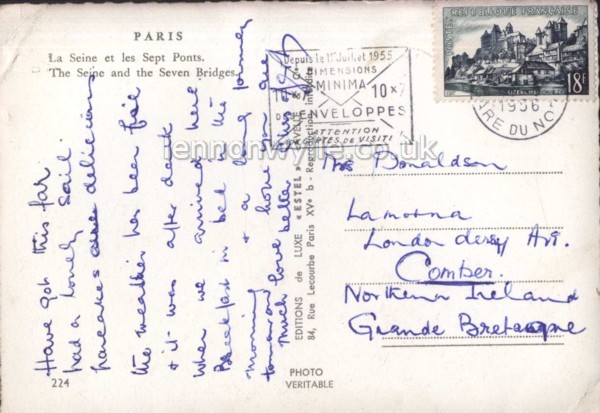 PARIS
La Seine et les Sept Ponts.
The Seine and the Seven Bridges.
Have got this far
had a lovely sail.
pancakes are delicious
the weather has been fair
& it was after dark
when we arrived here
Breakfast in bed in the
morning & a long journey
tomorrow hope you are
much love better
224
EDITIONS de LUXE "ESTEL"
84, Rue Lecourbe Paris XVe b - Reproduction interdite
PHOTO
VERITABLE
Depuis le 1er Juillet 1955
DIMENSIONS
MINIMA
10 x 7
ENVELOPPES
ATTENTION
CARTES DE VISITE
1956
GARE DU NORD
REPUBLIQUE FRANÇAISE
POSTES
18F
UZERCHE
Mrs Donaldson
Lamorna
Londonderry Av.
Comber.
Northern Ireland
Grande Bretagne
lennonwylie.co.uk